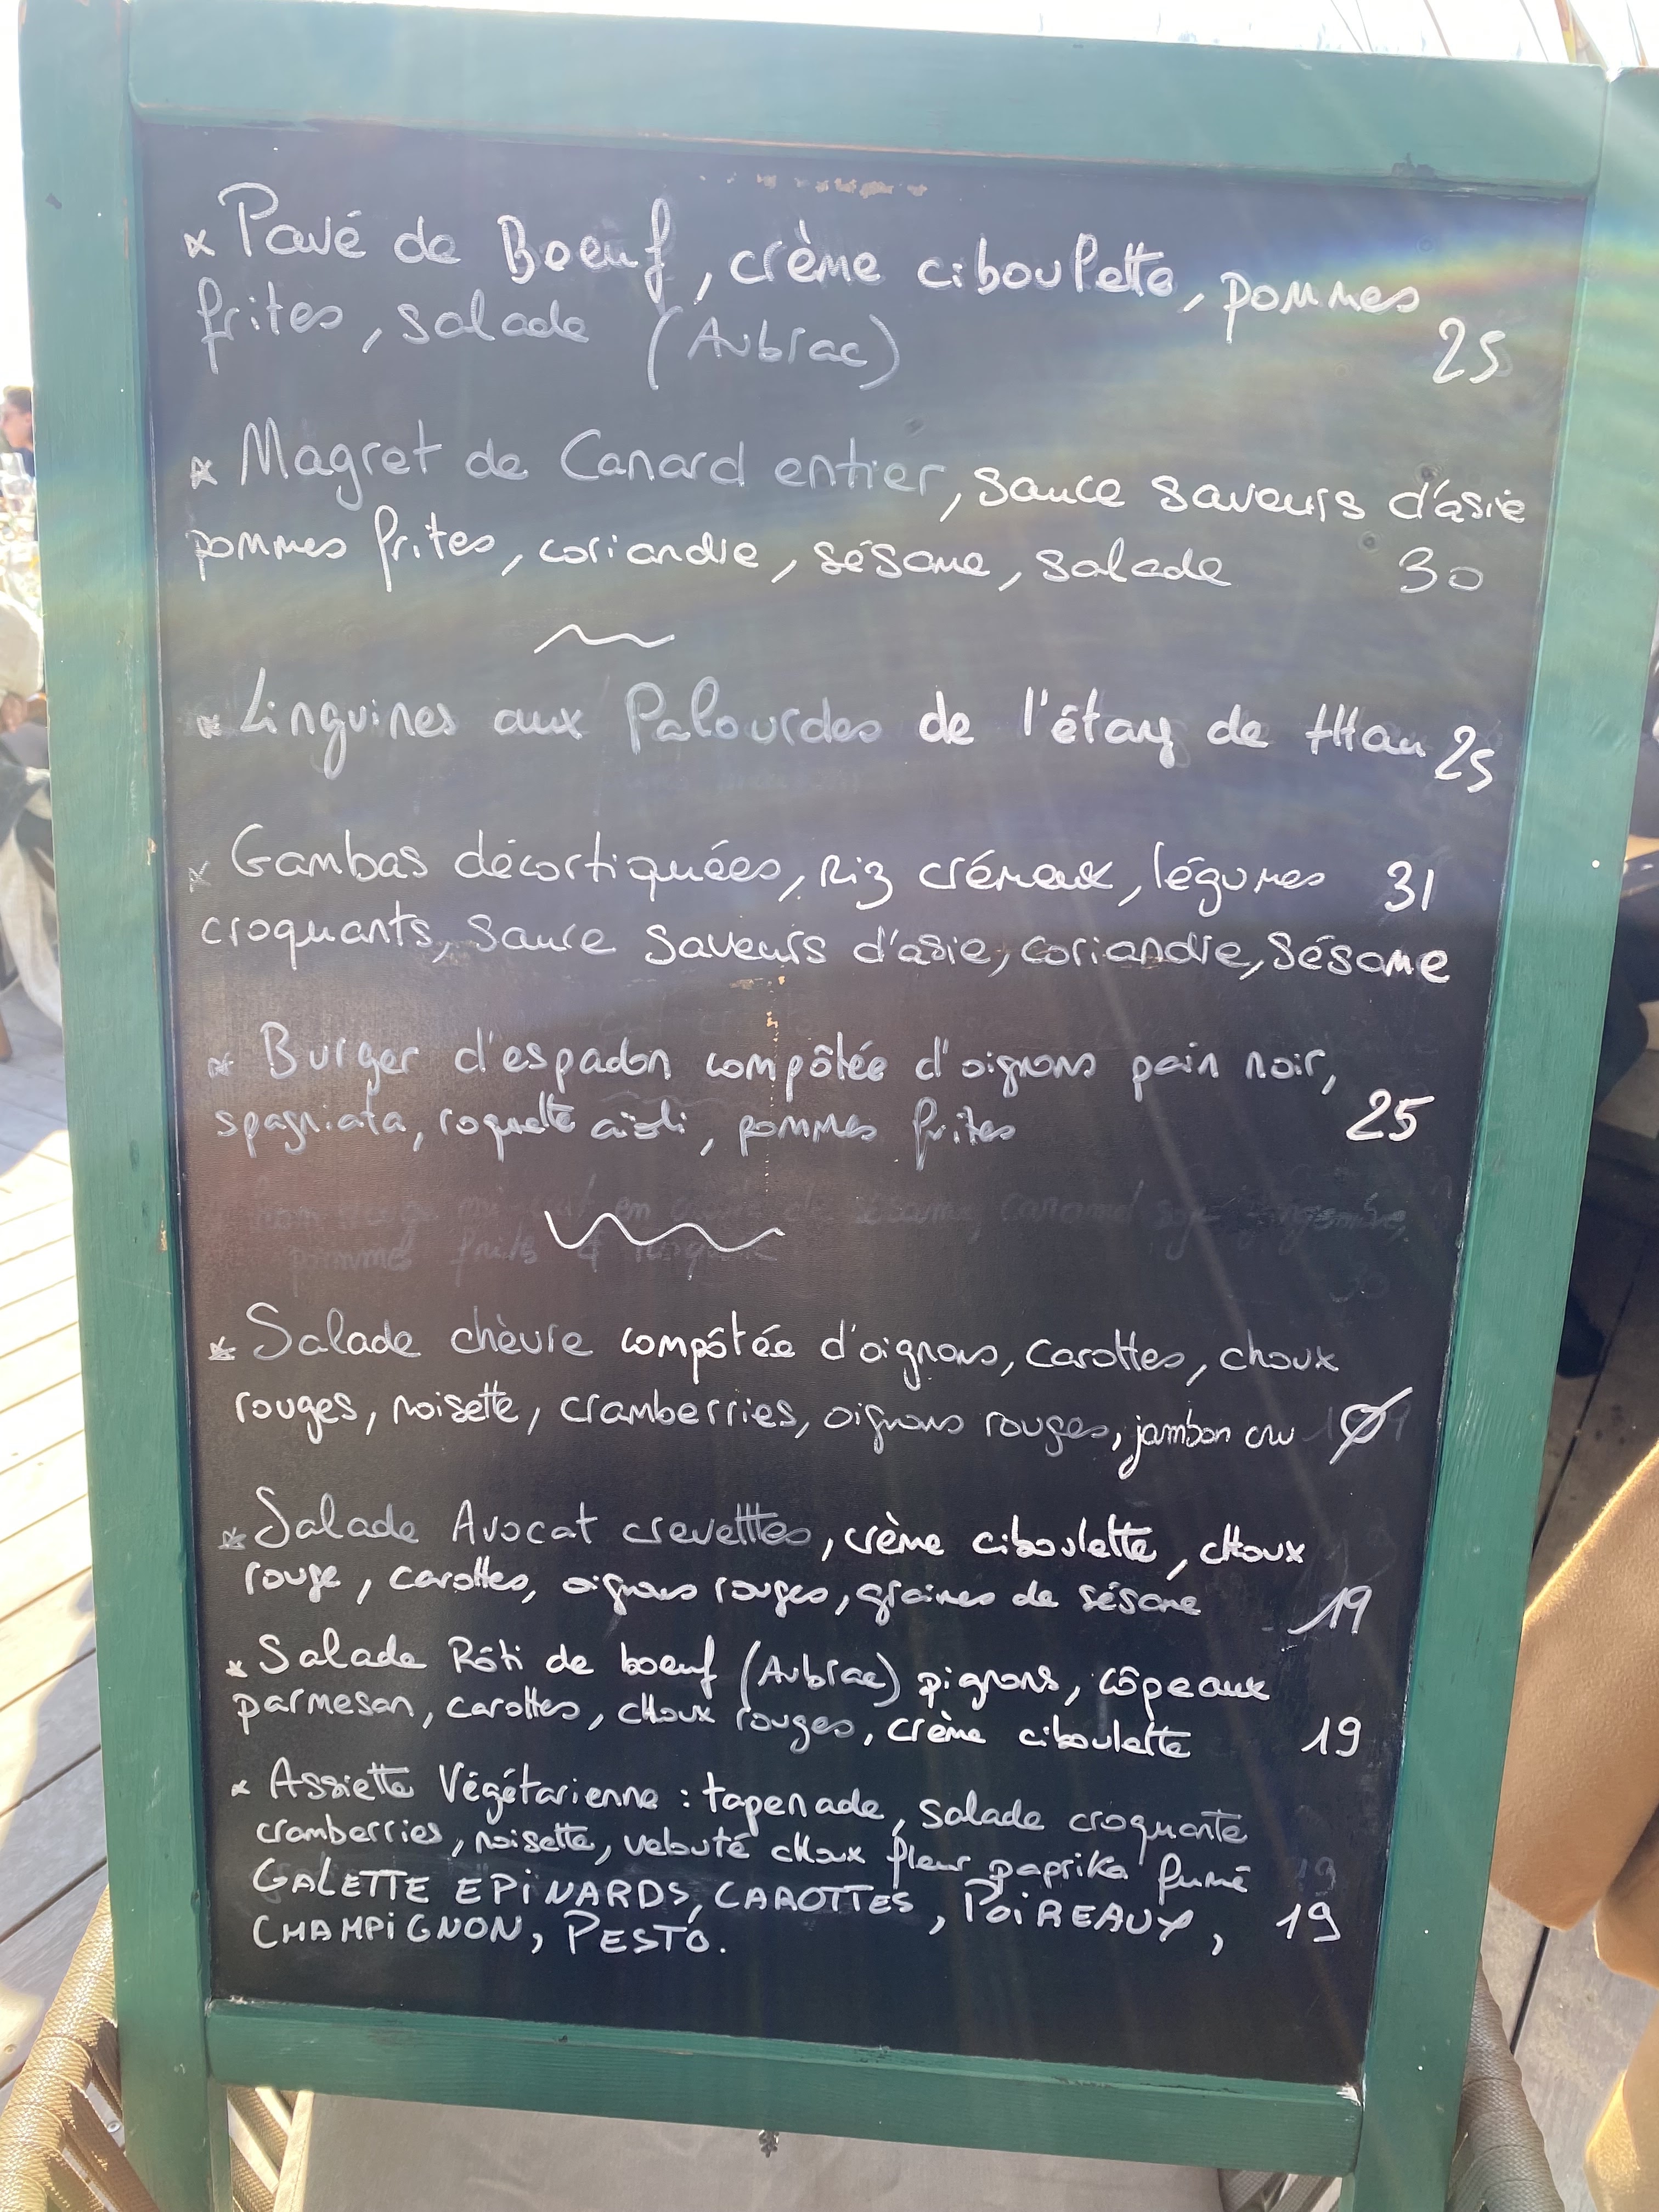 * Pavé de Boeuf, crème ciboulette, pommes
frites, salade (Aubrac) 25
* Magret de Canard entier, sauce saveurs d'asie
pommes frites, coriandre, sésame, salade 30
* Linguines aux Palourdes de l'étang de thau 25
* Gambas décortiquées, Riz crémeux, légumes 31
croquants, sauce saveurs d'asie, coriandre, sésame
* Burger d'espadon compôtée d'oignons pain noir,
roquette aïoli, pommes frites 25
* Salade chèvre compôtée d'oignons, carottes, choux
rouges, noisette, cramberries, oignons rouges, jambon cru Ø
* Salade Avocat crevettes, crème ciboulette, choux
rouge, carottes, oignons rouges, graines de sésame 19
* Salade Rôti de boeuf (Aubrac) pignons, côpeaux
parmesan, carottes, choux rouges, crème ciboulette 19
* Assiette Végétarienne : tapenade, salade croquante
cramberries, noisette, velouté choux fleur paprika fumé
GALETTE EPINARDS, CAROTTES, POIREAUX, 19
CHAMPIGNON, PESTO.